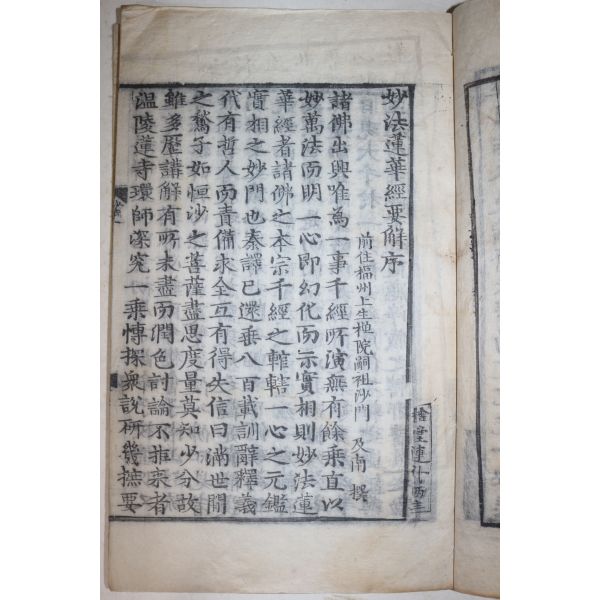 妙法蓮華經要解序
前住福州上生禪院嗣祖沙門 及南 撰
諸佛出興唯爲一事千經所演無有餘乘直以
妙萬法而明一心即幻化而示實相則妙法蓮
華經者諸佛之本宗千經之轄轄一心之元鑑
實相之妙門也秦譯已還垂八百載訓辭釋義
代有哲人而責備求全互有得失信曰滿世間
之鶖子如恒沙之菩薩盡思度量莫知少分故
雖多歷講解有所未盡而潤色討論不拒來者
溫陵蓮寺環師深究一乘慱探衆說研幾摭要